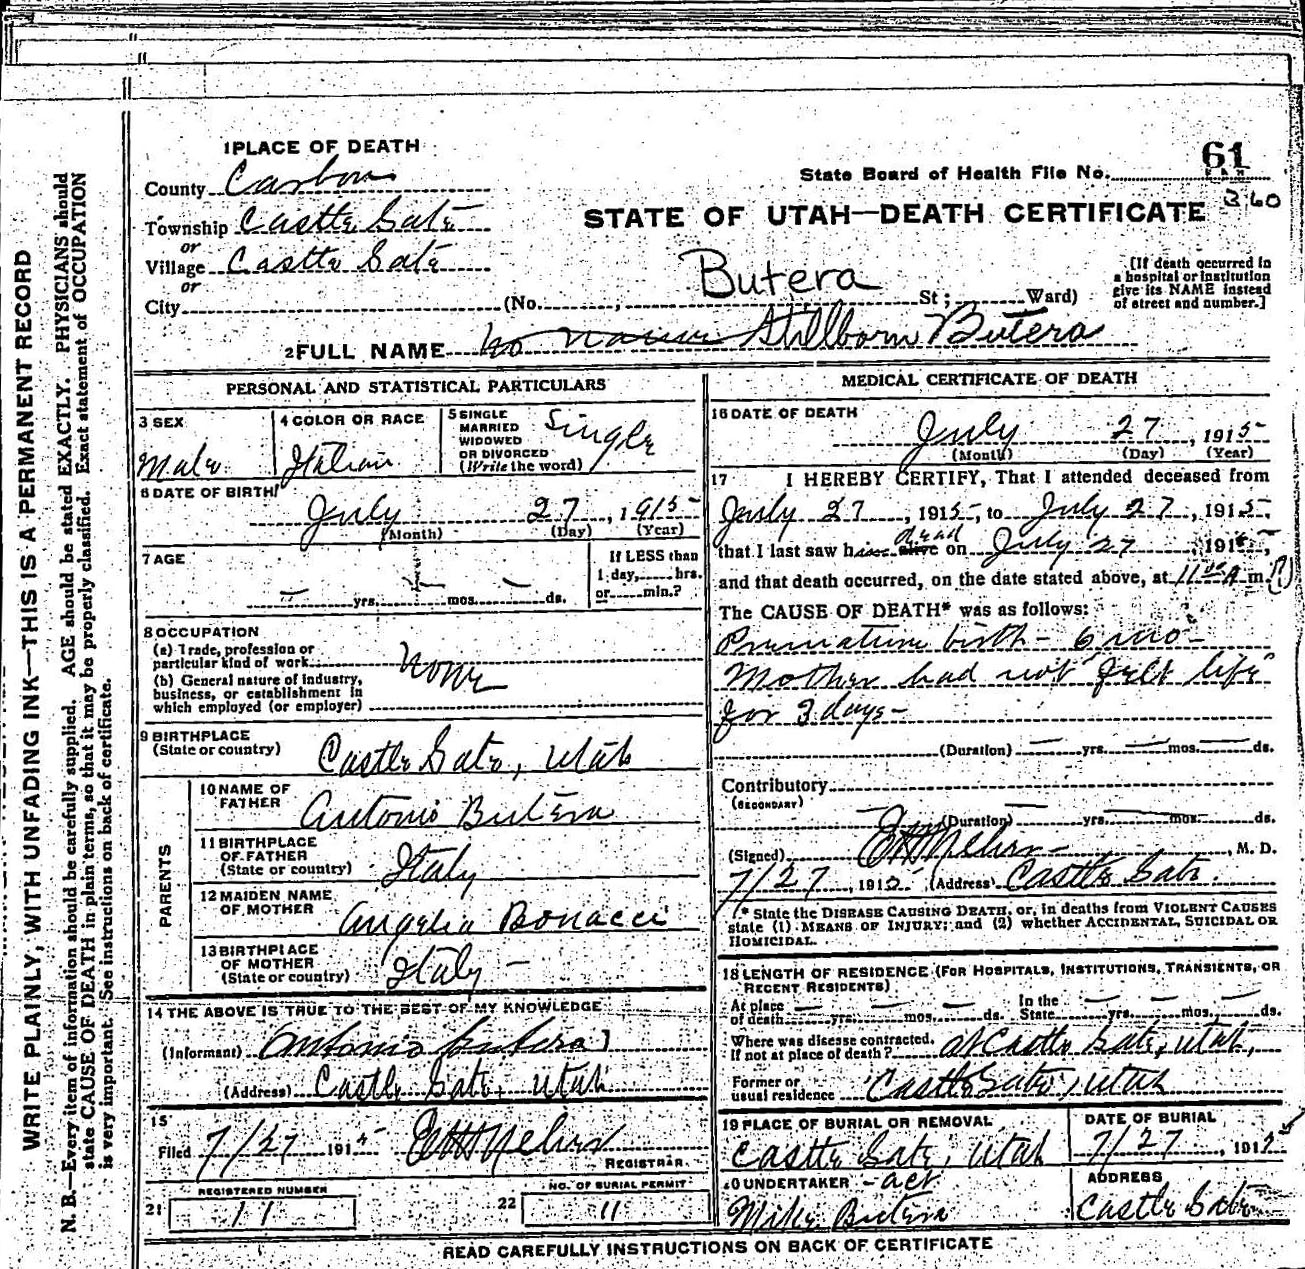 1 PLACE OF DEATH
County Carbon
Township Castle Gate
or
Village Castle Gate
or
City (No. St; Ward)
61
State Board of Health File No.
360
STATE OF UTAH—DEATH CERTIFICATE
Butera
[If death occurred in
a hospital or institution
give its NAME instead
of street and number.]
2 FULL NAME No name Stillborn Butera
PERSONAL AND STATISTICAL PARTICULARS
3 SEX
Male
4 COLOR OR RACE
Italian
5 SINGLE
MARRIED
WIDOWED
OR DIVORCED
(Write the word)
Single
6 DATE OF BIRTH
July 27, 1915
(Month) (Day) (Year)
7 AGE
— yrs. — mos. — ds.
If LESS than
1 day, hrs.
or min.?
8 OCCUPATION
(a) Trade, profession or
particular kind of work
None
(b) General nature of industry,
business, or establishment in
which employed (or employer)
9 BIRTHPLACE
(State or country)
Castle Gate, Utah
PARENTS
10 NAME OF
FATHER
Antonio Butera
11 BIRTHPLACE
OF FATHER
(State or country)
Italy
12 MAIDEN NAME
OF MOTHER
Angelia Bonacci
13 BIRTHPLACE
OF MOTHER
(State or country)
Italy —
14 THE ABOVE IS TRUE TO THE BEST OF MY KNOWLEDGE
(Informant) Antonio Butera
(Address) Castle Gate, Utah
15
Filed 7/27 1915
REGISTRAR.
REGISTERED NUMBER
21 11
NO. OF BURIAL PERMIT
22 11
MEDICAL CERTIFICATE OF DEATH
16 DATE OF DEATH
July 27, 1915
(Month) (Day) (Year)
17 I HEREBY CERTIFY, That I attended deceased from
July 27, 1915, to July 27, 1915,
that I last saw him alive dead on July 27, 191 ,
and that death occurred, on the date stated above, at 11 00 A m.
The CAUSE OF DEATH* was as follows:
Premature birth — 6 mo —
Mother had not "felt life"
for 3 days —
(Duration) — yrs. — mos. — ds.
Contributory
(SECONDARY)
(Duration) — yrs. — mos. ds.
(Signed) , M. D.
7/27, 1915 (Address) Castle Gate.
* State the DISEASE CAUSING DEATH, or, in deaths from VIOLENT CAUSES
state (1) MEANS OF INJURY; and (2) whether ACCIDENTAL, SUICIDAL OR
HOMICIDAL.
18 LENGTH OF RESIDENCE (FOR HOSPITALS, INSTITUTIONS, TRANSIENTS, OR
RECENT RESIDENTS)
At place
of death — yrs. — mos. — ds.
In the
State — yrs. — mos. — ds.
Where was disease contracted,
if not at place of death? at Castle Gate, Utah,
Former or
usual residence Castle Gate, Utah
19 PLACE OF BURIAL OR REMOVAL
Castle Gate, Utah
DATE OF BURIAL
7/27, 1915
20 UNDERTAKER - act
Mike Butera
ADDRESS
Castle Gate
READ CAREFULLY INSTRUCTIONS ON BACK OF CERTIFICATE
WRITE PLAINLY, WITH UNFADING INK—THIS IS A PERMANENT RECORD
N. B.—Every item of information should be carefully supplied. AGE should be stated EXACTLY. PHYSICIANS should
state CAUSE OF DEATH in plain terms, so that it may be properly classified. Exact statement of OCCUPATION
is very important. See instructions on back of certificate.